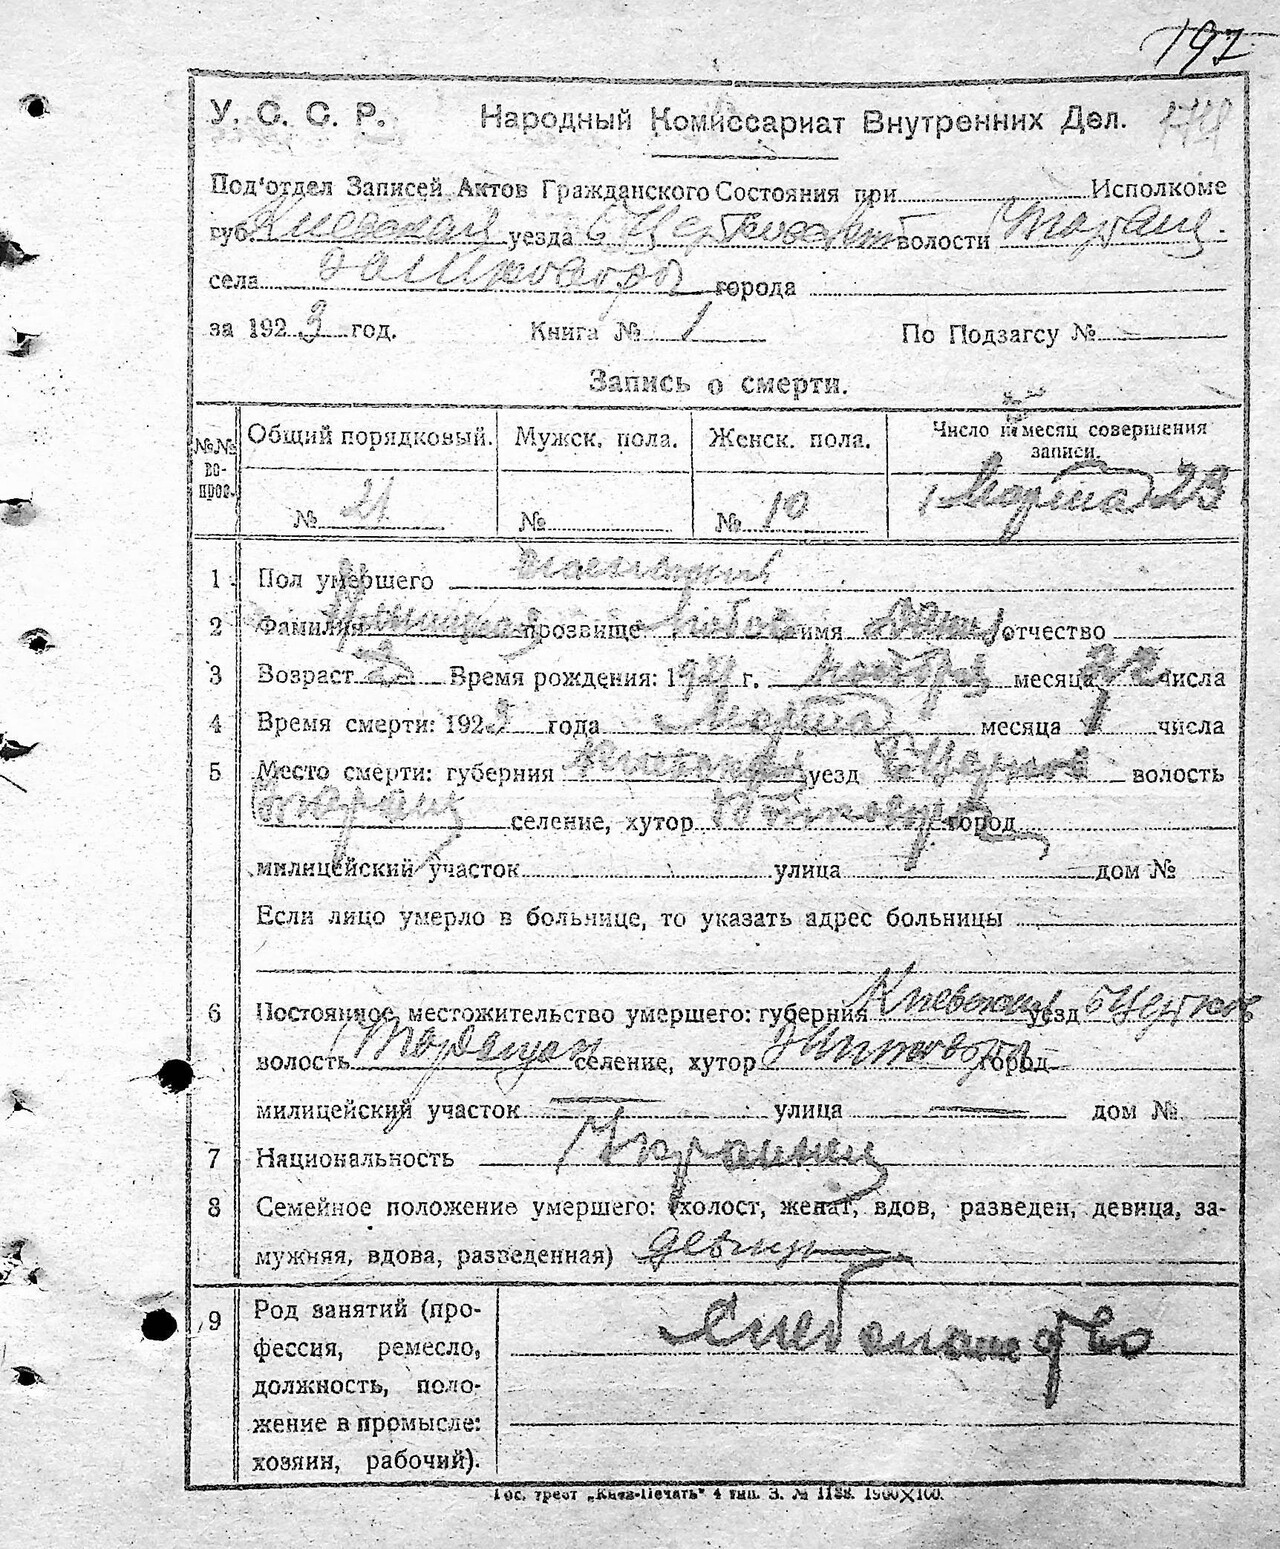 192
У. С. С. Р. Народный Комиссариат Внутренних Дел. 174
Под'отдел Записей Актов Гражданского Состояния при Исполкоме
губ. Киевская уезда бЦерковск волости
села города
за 1923 год. Книга № 1 По Подзагсу №
Запись о смерти.
№№ вопрос. Общий порядковый. Мужск. пола. Женск. пола. Число и месяц совершения записи.
№ 21 № № 10 1 Марта 23
1 Пол умершего женский
2 Фамилия прозвище имя отчество
3 Возраст 2 Время рождения: 192 г. ноября месяца 22 числа
4 Время смерти: 1923 года Марта месяца 1 числа
5 Место смерти: губерния Киевская уезд бЦерков волость
селение, хутор город
милицейский участок улица дом №
Если лицо умерло в больнице, то указать адрес больницы
6 Постоянное местожительство умершего: губерния Киевская уезд бЦерков
волость селение, хутор город
милицейский участок — улица — дом №
7 Национальность Украинец
8 Семейное положение умершего: (холост, женат, вдов, разведен, девица, за-
мужняя, вдова, разведенная) девица
9 Род занятий (про-
фессия, ремесло,
должность, поло-
жение в промысле:
хозяин, рабочий).
Хлебопашество
Гос. трест „Киев-Печать" 4 тип. З. №